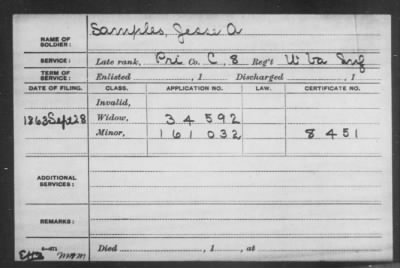 NAME OF SOLDIER: Samples, Jesse A
SERVICE: Late rank, Pri Co. C, 8 Reg't W Va Inf
TERM OF SERVICE: Enlisted , 1 Discharged , 1
DATE OF FILING. CLASS. APPLICATION NO. LAW. CERTIFICATE NO.
Invalid,
1863 Sept 28 Widow, 34592
Minor, 161032 8451
ADDITIONAL SERVICES:
REMARKS:
Died , 1 , at